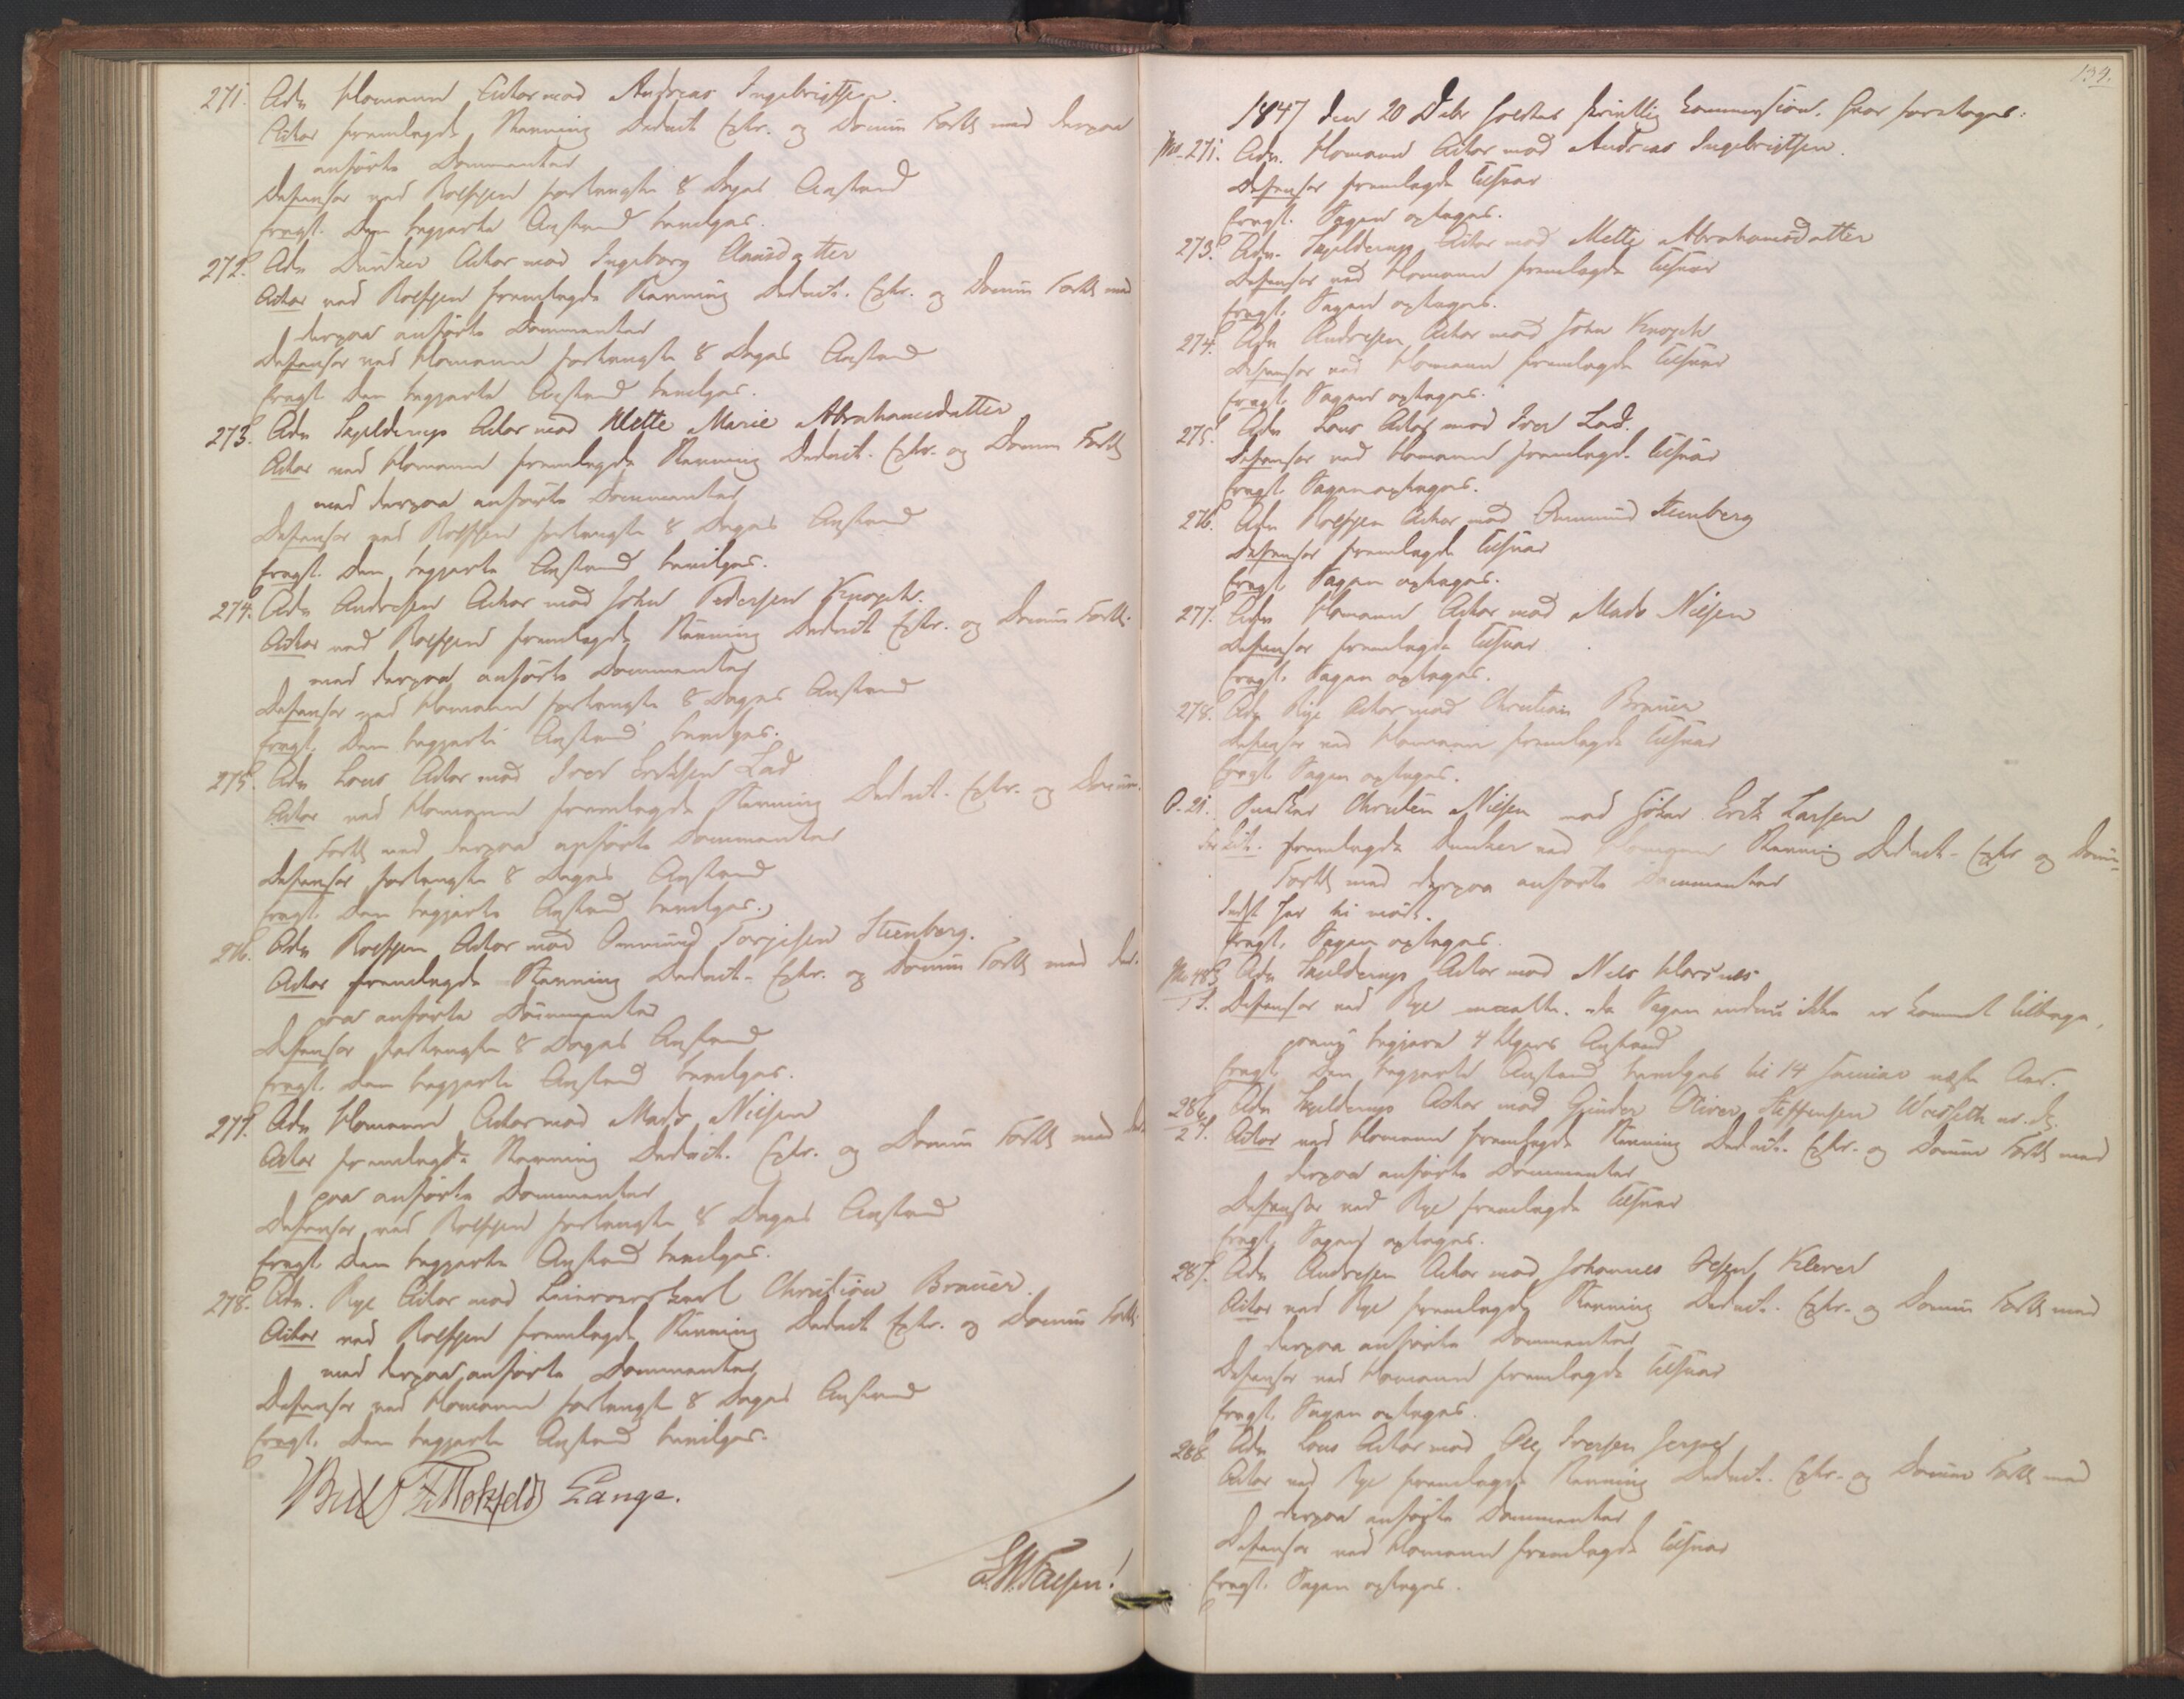 271. Adv Homann Actor mod Andreas Ingebrigtsen.
Actor fremlagde Stevning Deduct. Extr. og Docum Fortl med derpaa
anførte Documenter
Defensor ved Rolfsen forlangte 8 Dages Anstand
Eragt. Den begjærte Anstand bevilges.
272. Adv Dunker Actor mod Ingeborg Clausdatter
Actor ved Rolfsen fremlagde Stevning Deduct. Extr. og Docum Fortl med
derpaa anførte Documenter
Defensor ved Homann forlangte 8 Dages Anstand
Eragt. Den begjærte Anstand bevilges.
273. Adv Skjelderup Actor mod Mette Marie Abrahamsdatter
Actor ved Homann fremlagde Stevning Deduct. Extr. og Docum Fortl
med derpaa anførte Documenter
Defensor ved Rolfsen forlangte 8 Dages Anstand
Eragt. Den begjærte Anstand bevilges.
274. Adv Andresen Actor mod John Pedersen Knoph.
Actor ved Rolfsen fremlagde Stevning Deduct Extr. og Docum Fortl.
med derpaa anførte Documenter
Defensor ved Homann forlangte 8 Dages Anstand
Eragt. Den begjærte Anstand bevilges.
275. Adv Lous Actor mod Iver Eriksen Lad
Actor ved Homann fremlagde Stevning Deduct. Extr. og Docum.
Fortl med derpaa anførte Documenter
Defensor forlangte 8 Dages Anstand
Eragt. Den begjærte Anstand bevilges.
276. Adv Rolfsen Actor mod Torgisen Steenberg.
Actor fremlagde Stevning Deduct. Extr. og Docum Fortl med der-
paa anførte Documenter
Defensor forlangte 8 Dages Anstand
Eragt. Den begjærte Anstand bevilges.
277. Adv Homann Actor mod Mads Nilsen
Actor fremlagde Stevning Deduct. Extr. og Docum Fortl med der
paa anførte Documenter
Defensor ved Rolfsen forlangte 8 Dages Anstand
Eragt. Den begjærte Anstand bevilges.
278. Adv. Rye Actor mod Christian Brauer.
Actor ved Rolfsen fremlagde Stevning Deduct Extr. og Docum Fortl.
med derpaa anførte Documenter
Defensor ved Homann forlangte 8 Dages Anstand
Eragt. Den begjærte Anstand bevilges.
Bull F. Motzfeldt Lange.
139.
1847 den 20 Debr holdtes skriftlig Session. Hvor foretoges:
No. 271. Adv. Homann Actor mod Andreas Ingebrigtsen.
Defensor fremlagde Tilsvar
Eragt. Sagen optages.
273. Adv. Skjelderup Actor mod Mette Abrahamsdatter
Defensor ved Homann fremlagde Tilsvar
Eragt. Sagen optages.
274. Adv Andresen Actor mod John Knoph
Defensor ved Homann fremlagde Tilsvar
Eragt. Sagen optages.
275. Adv Lous Actor mod Iver Lad.
Defensor ved Homann fremlagde Tilsvar
Eragt. Sagen optages.
276. Adv Rolfsen Actor mod Steenberg
Defensor fremlagde Tilsvar
Eragt. Sagen optages.
277. Adv Homann Actor mod Mads Nilsen
Defensor fremlagde Tilsvar
Eragt. Sagen optages.
278. Adv Rye Actor mod Christian Brauer
Defensor ved Homann fremlagde Tilsvar
Eragt. Sagen optages.
O. 21. Nielsen mod Erik Larsen
fremlagde Dunker ved Homann Stevning Deduct. Extr og Docum
Fortl med derpaa anførte Documenter
Indst har ei mødt.
Eragt. Sagen optages.
Adv Skjelderup Actor mod Nils
Defensor ved Rye maatte, da Sagen endnu ikke er kommet tilbage,
paany begjære 4 Ugers Anstand
Eragt. Den begjærte Anstand bevilges til 14 Januar næste Aar.
286. Adv Skjelderup Actor mod Oliver Steffensen
Actor ved Homann fremlagde Stevning Deduct. Extr. og Docum Fortl med
derpaa anførte Documenter
Defensor ved Rye fremlagde Tilsvar
Eragt. Sagen optages.
287. Adv Andresen Actor mod Johannes Olsen Klever
Actor ved Rye fremlagde Stevning Deduct. Extr. og Docum Fortl med
derpaa anførte Documenter
Defensor ved Homann fremlagde Tilsvar
Eragt. Sagen optages.
288 Adv Lous Actor mod Ole Iversen
Actor ved Rye fremlagde Stevning Deduct. Extr. og Docum Fortl med
derpaa anførte Documenter
Defensor ved Homann fremlagde Tilsvar
Eragt. Sagen optages.